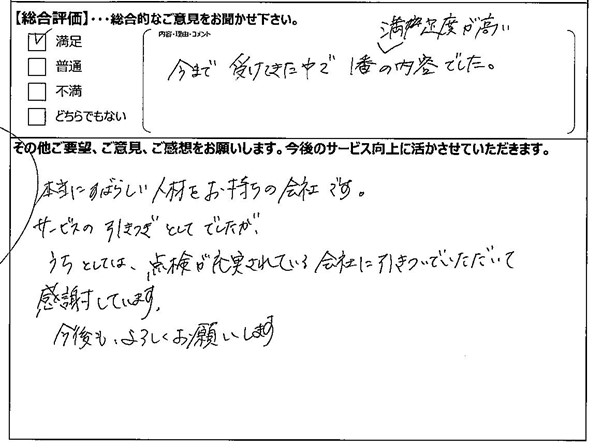 【総合評価】・・・総合的なご意見をお聞かせ下さい。
満足
普通
不満
どちらでもない
内容・理由・コメント
満足度が高い
今まで 受けてきた中で 1番の内容でした。
その他ご要望、ご意見、ご感想をお願いします。今後のサービス向上に活かさせていただきます。
本当にすばらしい人材をお持ちの会社です。
サービスの引きつぎとしてでしたが、
うちとしては、点検が充実されている会社に引きついでいただいて
感謝しています。
今後も、よろしくお願いします